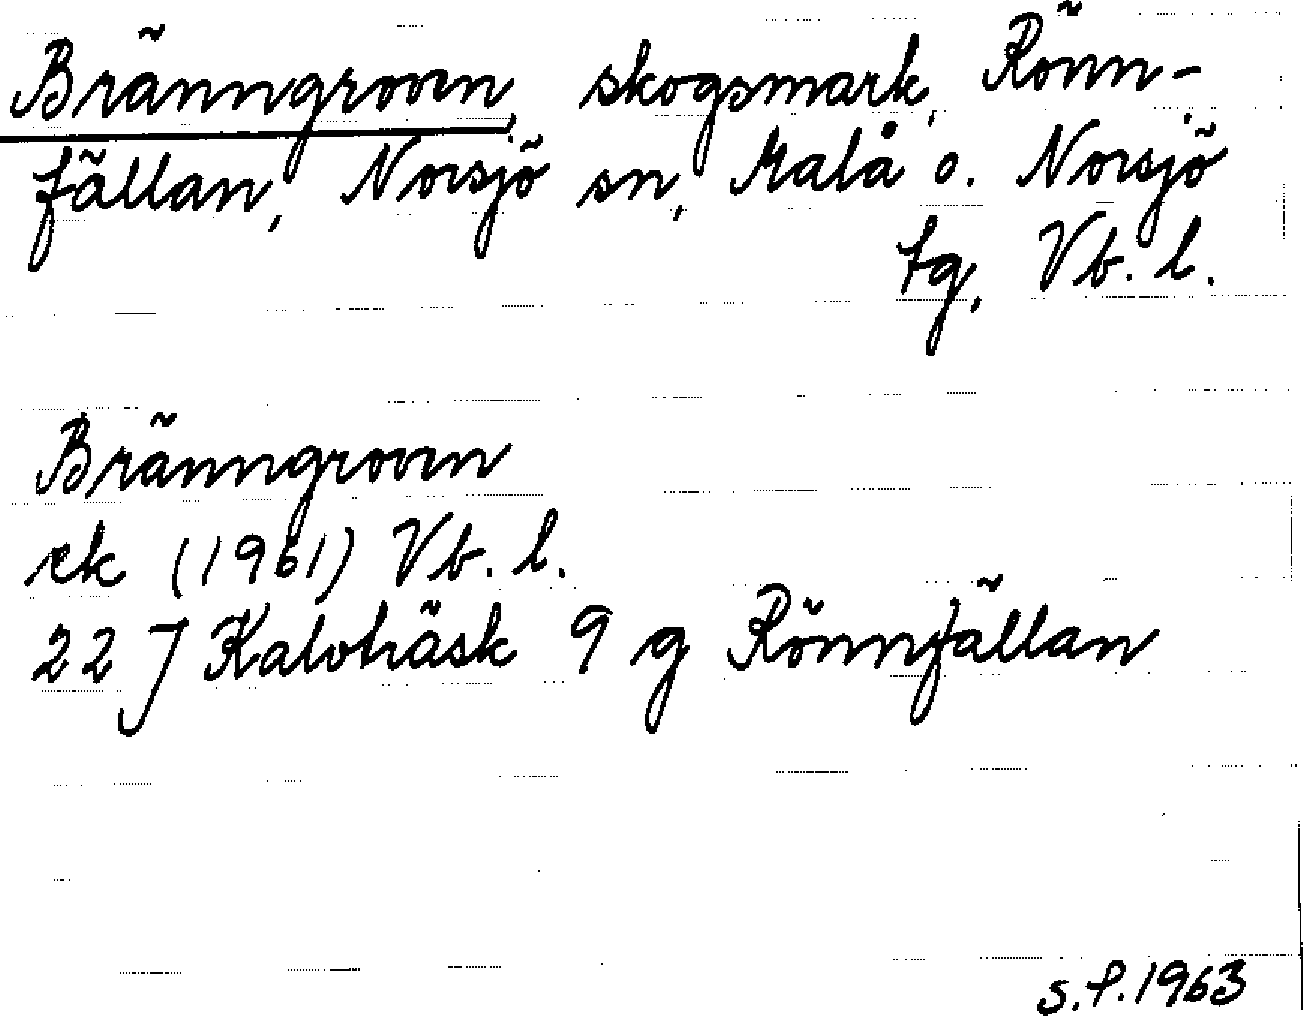 Bränngroven, skogsmark, Rönn-
fällan, Norsjö sn, Malå o. Norsjö
tg, Vb. l.
Bränngroven
ek (1961) Vb. l.
22 J Kalvträsk 9 g Rönnfällan
s.f. 1963